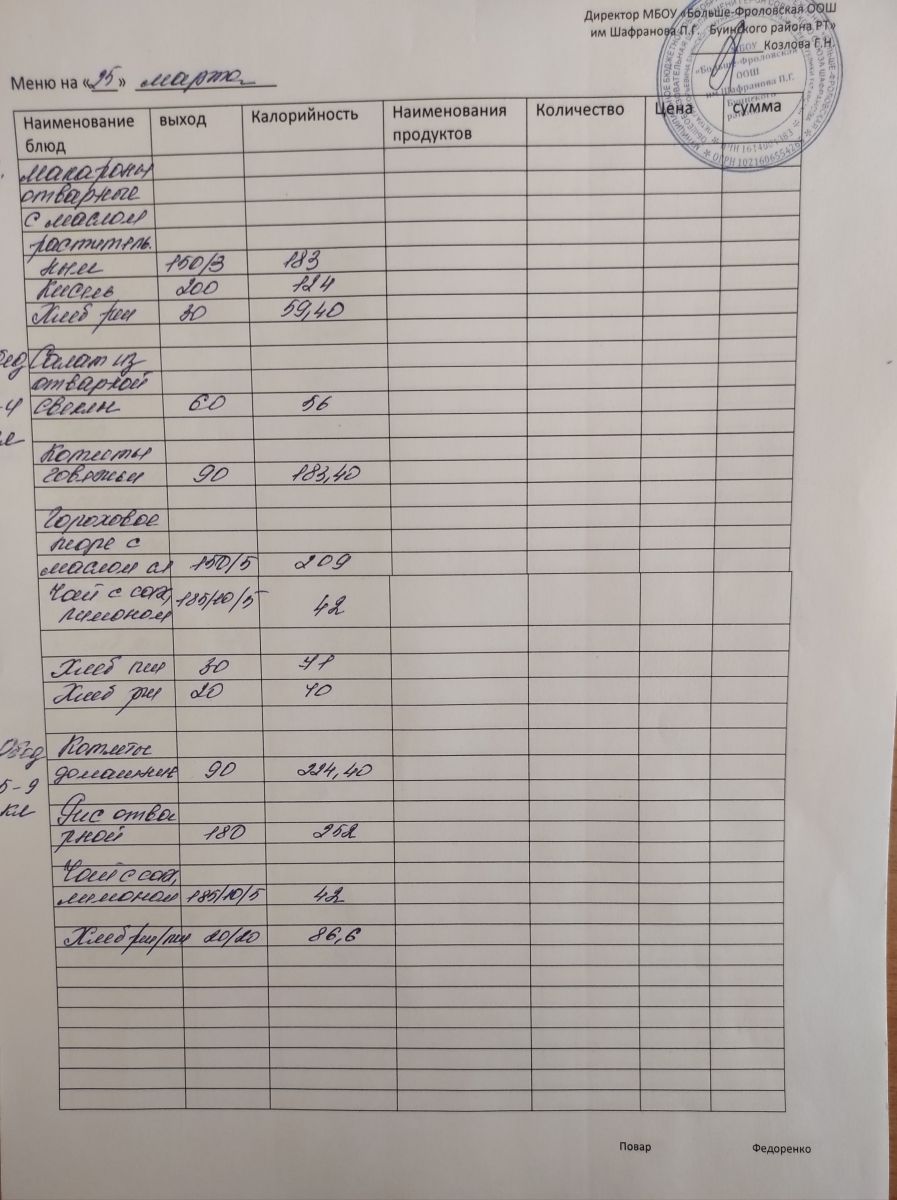 Директор МБОУ «Больше-Фроловская ООШ
им Шафранова П.Г. Буинского района РТ»
Козлова Г.Н.
МБОУ
«Больше-Фроловская
ООШ
им Шафранова П.Г.
Буинского
района
Меню на «25» марта
Наименование блюд выход Калорийность Наименования продуктов Количество Цена сумма
макароны
отварные
с маслом
раститель.
ным 150/3 183
Кисель 200 124
Хлеб рж 30 59,40
Салат из
отварной
4 свеклы 60 56
Котлеты
говяжьи 90 183,40
Гороховое
пюре с
маслом сл 150/5 209
Чай с сах, 185/10/5
лимоном 42
Хлеб пш 30 71
Хлеб рж 20 40
Обед Котлеты
домашние 90 224,40
5-9
кл Рис отва
рной 180 252
Чай с сах,
лимоном 185/10/5 42
Хлеб рж/пш 20/20 86,6
Повар Федоренко